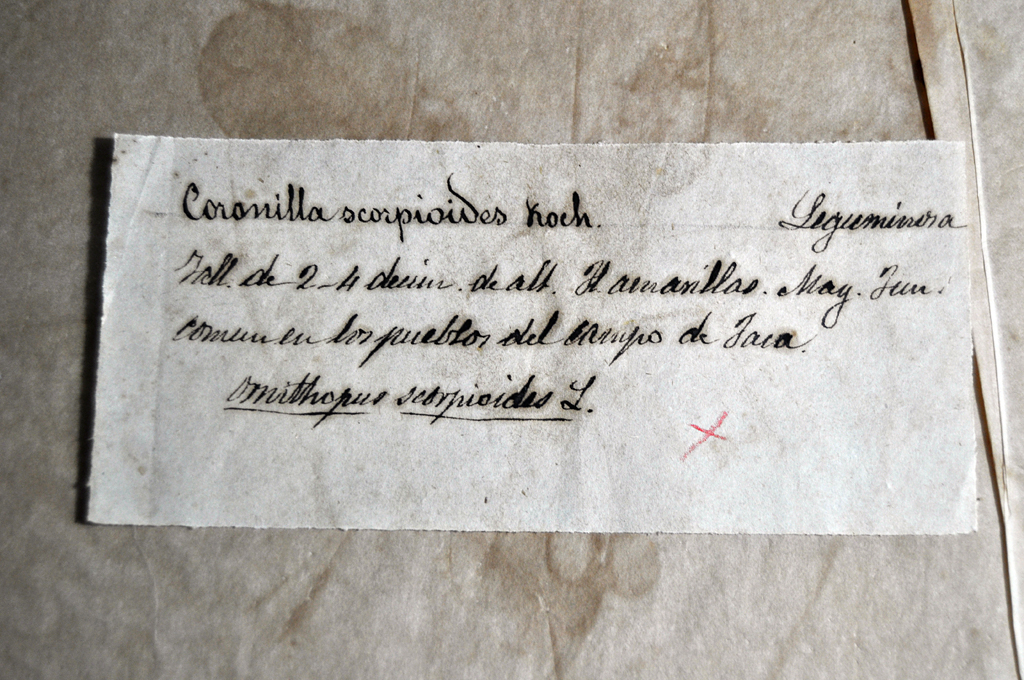 Coronilla scorpioides Koch. Leguminosa
Tall. de 2-4 decim. de alt. Fl amarillas. May. Jun.
comun en los pueblos del campo de Jaca.
Ornithopus scorpioides L.